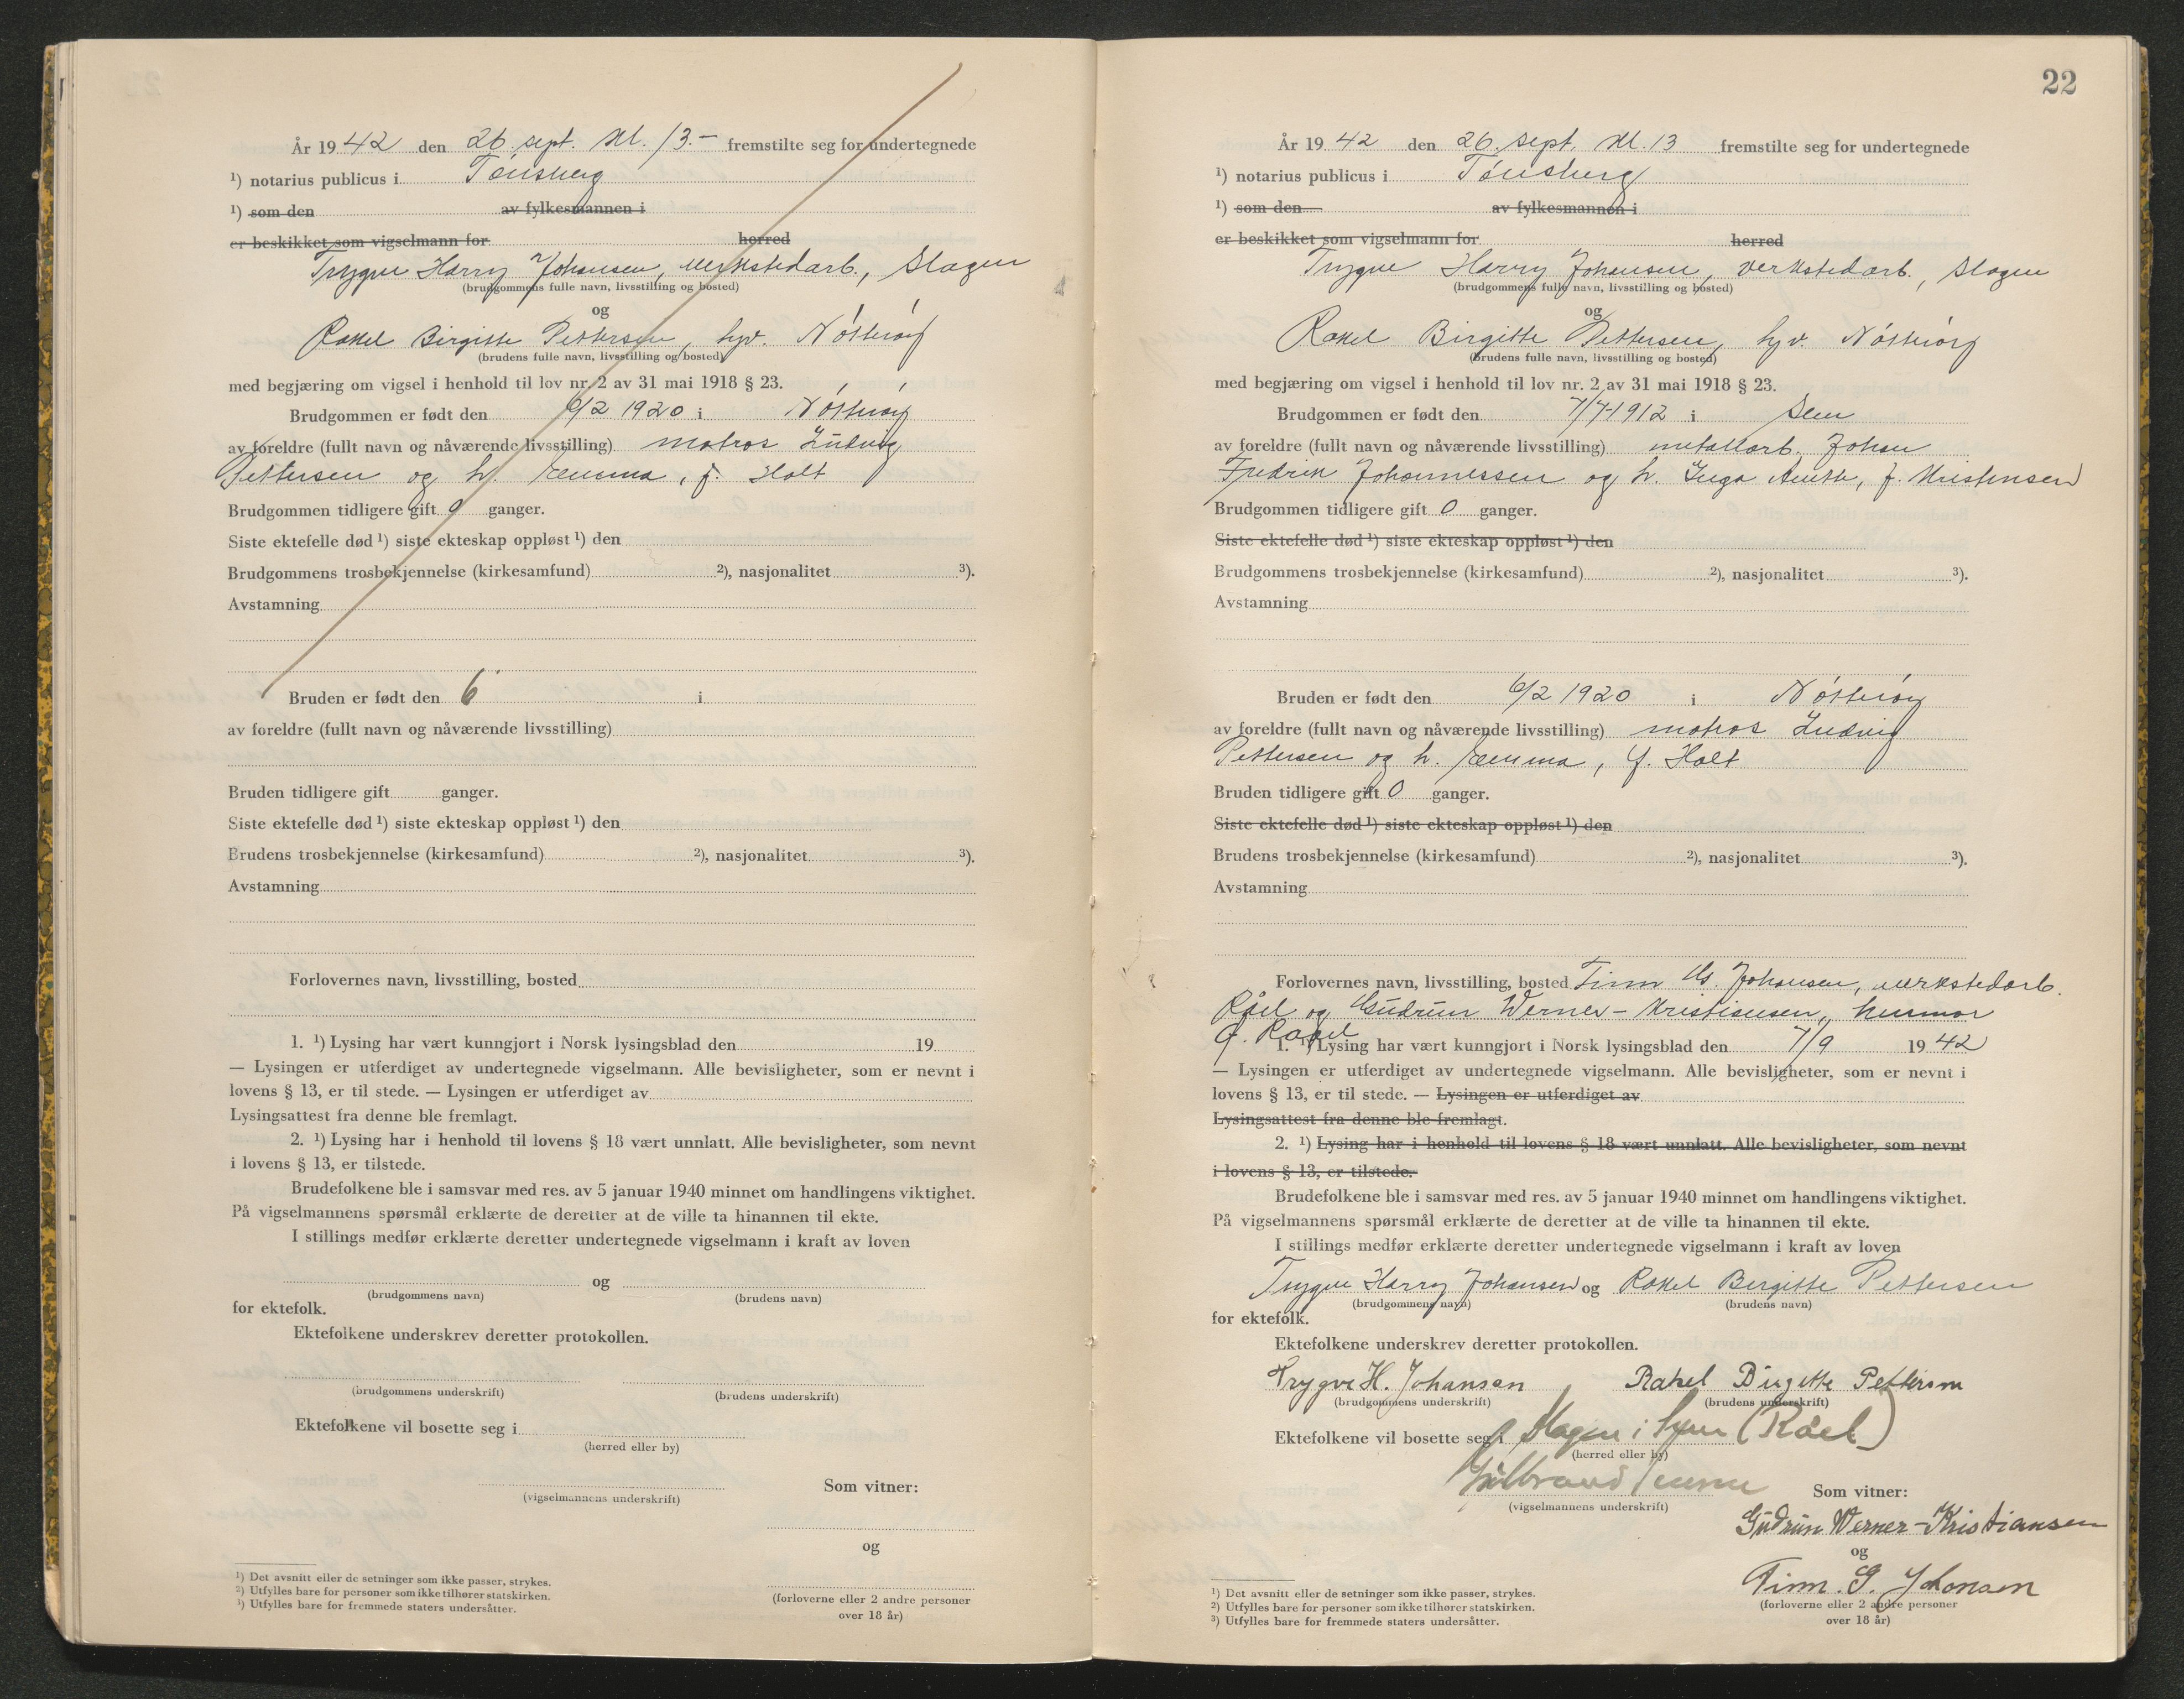 År 1942 den 26. sept. kl. 13.– fremstilte seg for undertegnede
¹) notarius publicus i Tønsberg
¹) som den av fylkesmannen i
er beskikket som vigselmann for herred
Trygve Harry Johansen, verkstedarb., Slagen
(brudgommens fulle navn, livsstilling og bosted)
og
Rakel Birgitte Pettersen, hjv. Nøtterøy
(brudens fulle navn, livsstilling og bosted)
med begjæring om vigsel i henhold til lov nr. 2 av 31 mai 1918 § 23.
Brudgommen er født den 6/2 1920 i Nøtterøy
av foreldre (fullt navn og nåværende livsstilling) matros Ludvig
Pettersen og h. Emma, f. Holt
Brudgommen tidligere gift 0 ganger.
Siste ektefelle død ¹) siste ekteskap oppløst ¹) den
Brudgommens trosbekjennelse (kirkesamfund) ²), nasjonalitet ³).
Avstamning
Bruden er født den 6 i
av foreldre (fullt navn og nåværende livsstilling)
Bruden tidligere gift ganger.
Siste ektefelle død ¹) siste ekteskap oppløst ¹) den
Brudens trosbekjennelse (kirkesamfund) ²), nasjonalitet ³).
Avstamning
Forlovernes navn, livsstilling, bosted
1. ¹) Lysing har vært kunngjort i Norsk lysingsblad den 19
— Lysingen er utferdiget av undertegnede vigselmann. Alle bevisligheter, som er nevnt i
lovens § 13, er til stede. — Lysingen er utferdiget av
Lysingsattest fra denne ble fremlagt.
2. ¹) Lysing har i henhold til lovens § 18 vært unnlatt. Alle bevisligheter, som nevnt
i lovens § 13, er tilstede.
Brudefolkene ble i samsvar med res. av 5 januar 1940 minnet om handlingens viktighet.
På vigselmannens spørsmål erklærte de deretter at de ville ta hinannen til ekte.
I stillings medfør erklærte deretter undertegnede vigselmann i kraft av loven
og
(brudgommens navn) (brudens navn)
for ektefolk.
Ektefolkene underskrev deretter protokollen.
(brudgommens underskrift) (brudens underskrift)
Ektefolkene vil bosette seg i
(herred eller by)
Som vitner:
(vigselmannens underskrift)
og
(forloverne eller 2 andre personer
over 18 år)
¹) Det avsnitt eller de setninger som ikke passer, strykes.
²) Utfylles bare for personer som ikke tilhører statskirken.
³) Utfylles bare for fremmede staters undersåtter.
22
År 1942 den 26. sept. kl. 13 fremstilte seg for undertegnede
¹) notarius publicus i Tønsberg
¹) som den av fylkesmannen i
er beskikket som vigselmann for herred
Trygve Harry Johansen, verkstedarb., Slagen
(brudgommens fulle navn, livsstilling og bosted)
og
Rakel Birgitte Pettersen, hjv. Nøtterøy
(brudens fulle navn, livsstilling og bosted)
med begjæring om vigsel i henhold til lov nr. 2 av 31 mai 1918 § 23.
Brudgommen er født den 7/7-1912 i Sem
av foreldre (fullt navn og nåværende livsstilling) metallarb. Johan
Fredrik Johannessen og h. Inga Anette, f. Kristensen
Brudgommen tidligere gift 0 ganger.
Siste ektefelle død ¹) siste ekteskap oppløst ¹) den
Brudgommens trosbekjennelse (kirkesamfund) ²), nasjonalitet ³).
Avstamning
Bruden er født den 6/2 1920 i Nøtterøy
av foreldre (fullt navn og nåværende livsstilling) matros Ludvig
Pettersen og h. Emma, f. Holt
Bruden tidligere gift 0 ganger.
Siste ektefelle død ¹) siste ekteskap oppløst ¹) den
Brudens trosbekjennelse (kirkesamfund) ²), nasjonalitet ³).
Avstamning
Forlovernes navn, livsstilling, bosted Finn G. Johansen, verkstedarb.
Råel og Gudrun Werner-Kristiansen, husmor
1. ¹) Lysing har vært kunngjort i Norsk lysingsblad den 7/9 1942
— Lysingen er utferdiget av undertegnede vigselmann. Alle bevisligheter, som er nevnt i
lovens § 13, er til stede. — Lysingen er utferdiget av
Lysingsattest fra denne ble fremlagt.
2. ¹) Lysing har i henhold til lovens § 18 vært unnlatt. Alle bevisligheter, som nevnt
i lovens § 13, er tilstede.
Brudefolkene ble i samsvar med res. av 5 januar 1940 minnet om handlingens viktighet.
På vigselmannens spørsmål erklærte de deretter at de ville ta hinannen til ekte.
I stillings medfør erklærte deretter undertegnede vigselmann i kraft av loven
Trygve Harry Johansen og Rakel Birgitte Pettersen
(brudgommens navn) (brudens navn)
for ektefolk.
Ektefolkene underskrev deretter protokollen.
Trygve H. Johansen Rakel Birgitte Pettersen
(brudgommens underskrift) (brudens underskrift)
Ektefolkene vil bosette seg i Slagen i Sem (Råel)
(herred eller by)
Som vitner:
(vigselmannens underskrift)
Gudrun Werner-Kristiansen
og
Finn. G. Johansen
(forloverne eller 2 andre personer
over 18 år)
¹) Det avsnitt eller de setninger som ikke passer, strykes.
²) Utfylles bare for personer som ikke tilhører statskirken.
³) Utfylles bare for fremmede staters undersåtter.